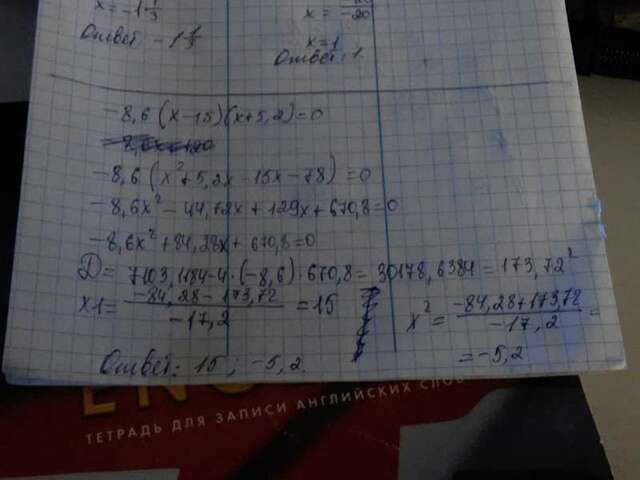 x = -1 1/3
Ответ -1 1/3
x = -20
x = 1
Ответ: 1
-8,6 (x-15)(x+5,2)=0
-8,6 (x²+5,2x-15x-78)=0
-8,6x²-44,72x+129x+670,8=0
-8,6x²+84,28x+670,8=0
D = 7103,1184-4·(-8,6)·670,8=30178,6384=173,72²
x1 = (-84,28-173,72)/(-17,2) = 15
x² = (-84,28+173,72)/(-17,2) =
= -5,2
Ответ: 15; -5,2.
ТЕТРАДЬ ДЛЯ ЗАПИСИ АНГЛИЙСКИХ СЛОВ